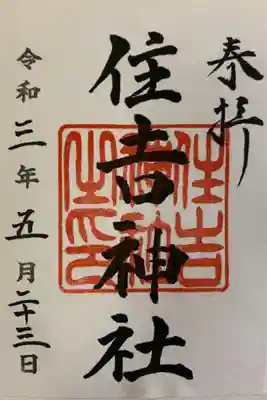 奉拝
住吉神社
令和三年五月二十三日